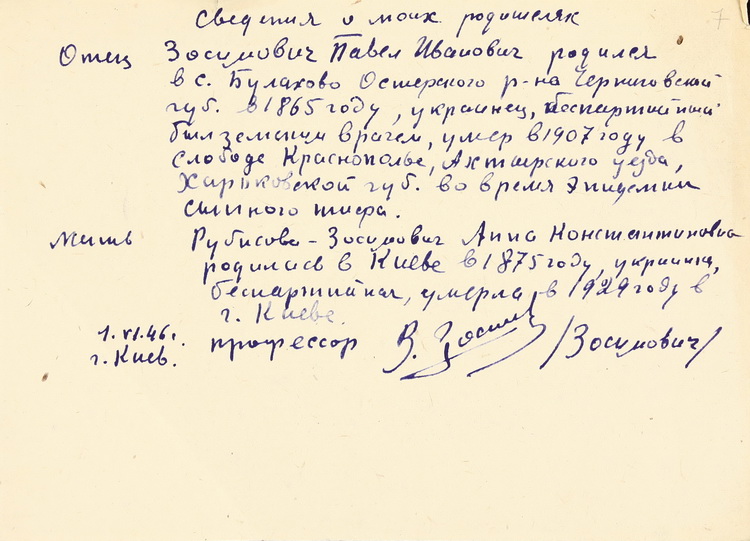 7
Сведения о моих родителях
Отец Зосимович Павел Иванович родился
в с. Булахово Остерского р-на Черниговской
губ. в 1865 году, украинец, беспартийный
был земским врачем, умер в 1907 году в
слободе Краснополье, Ахтырского уезда,
Харьковской губ. во время эпидемии
сыпного тифа.
Мать Рубисова-Зосимович Анна Константиновна
родилась в Киеве в 1875 году, украинка,
беспартийная, умерла в 1929 году в
г. Киеве.
1.VI.46г. профессор В. Зосим /Зосимович/
г. Киев.